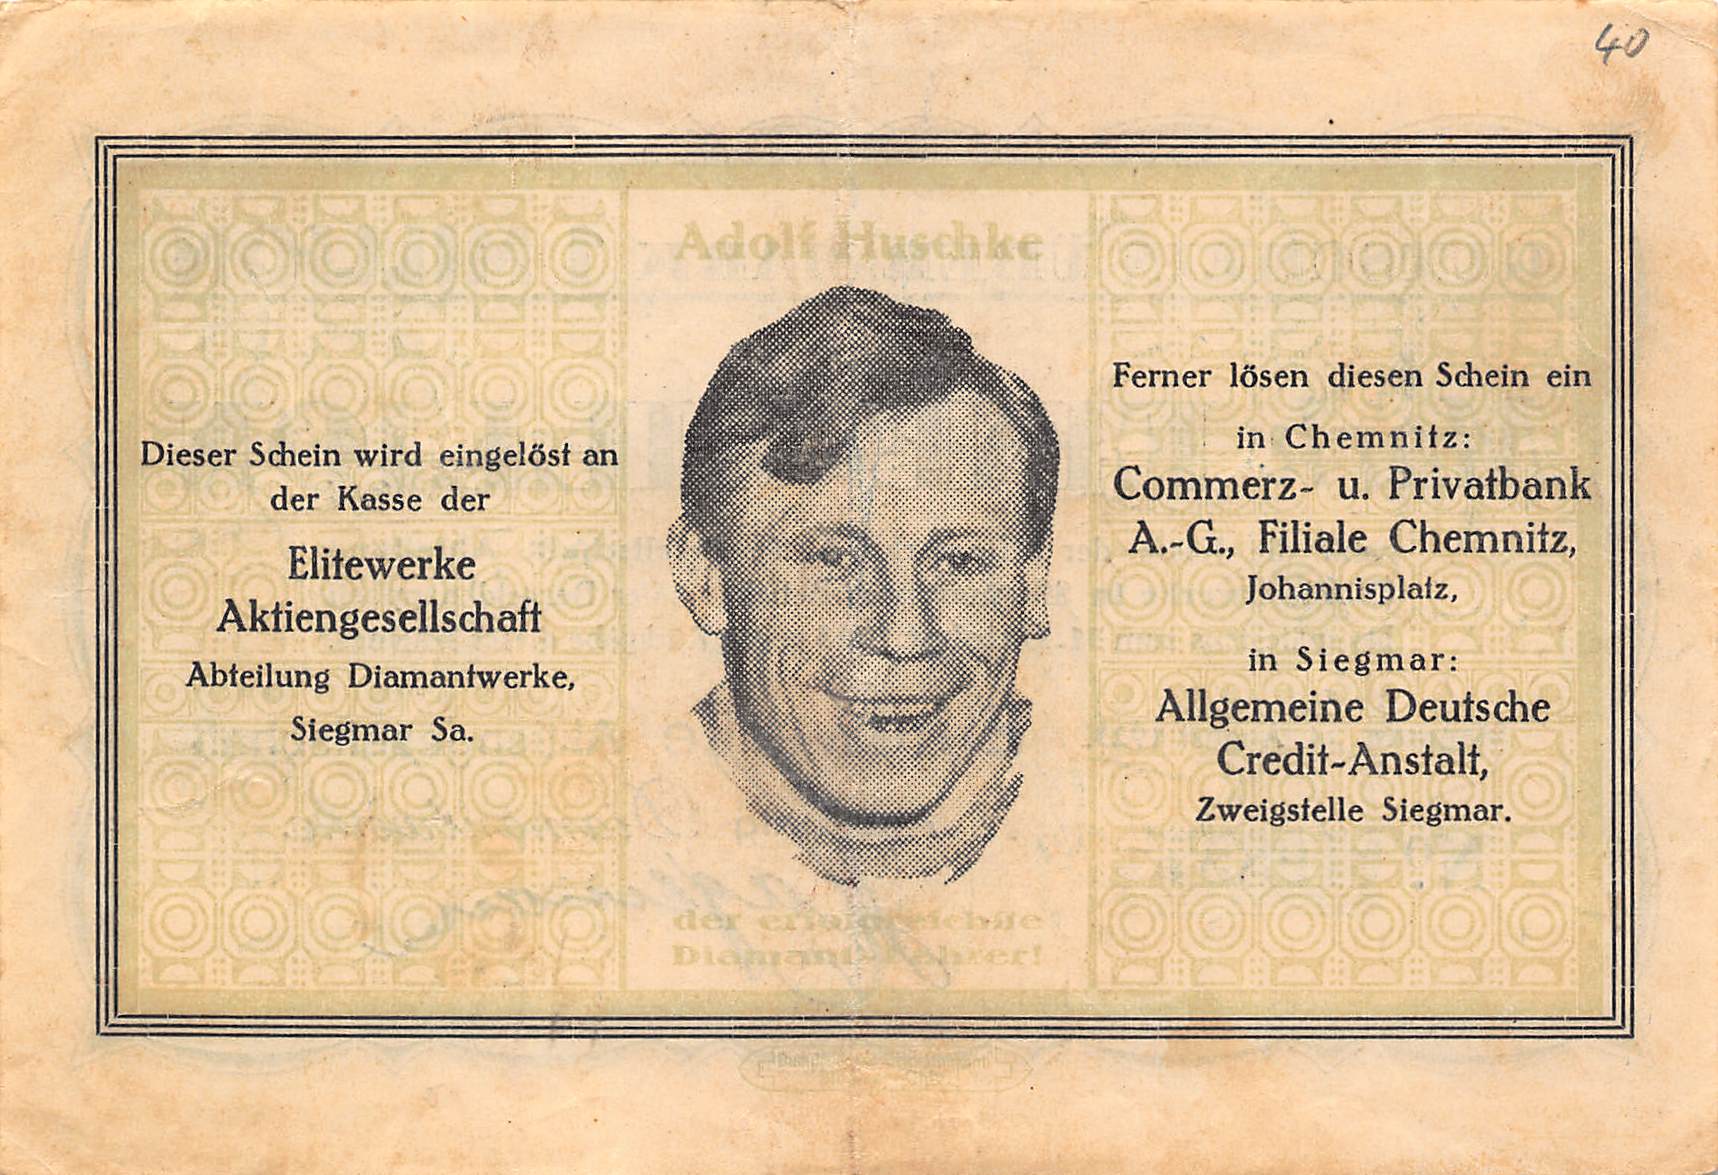 40
Adolf Huschke
Dieser Schein wird eingelöst an
der Kasse der
Elitewerke
Aktiengesellschaft
Abteilung Diamantwerke,
Siegmar Sa.
der erfolgreichste
Diamant-Fahrer!
Ferner lösen diesen Schein ein
in Chemnitz:
Commerz- u. Privatbank
A.-G., Filiale Chemnitz,
Johannisplatz,
in Siegmar:
Allgemeine Deutsche
Credit-Anstalt,
Zweigstelle Siegmar.